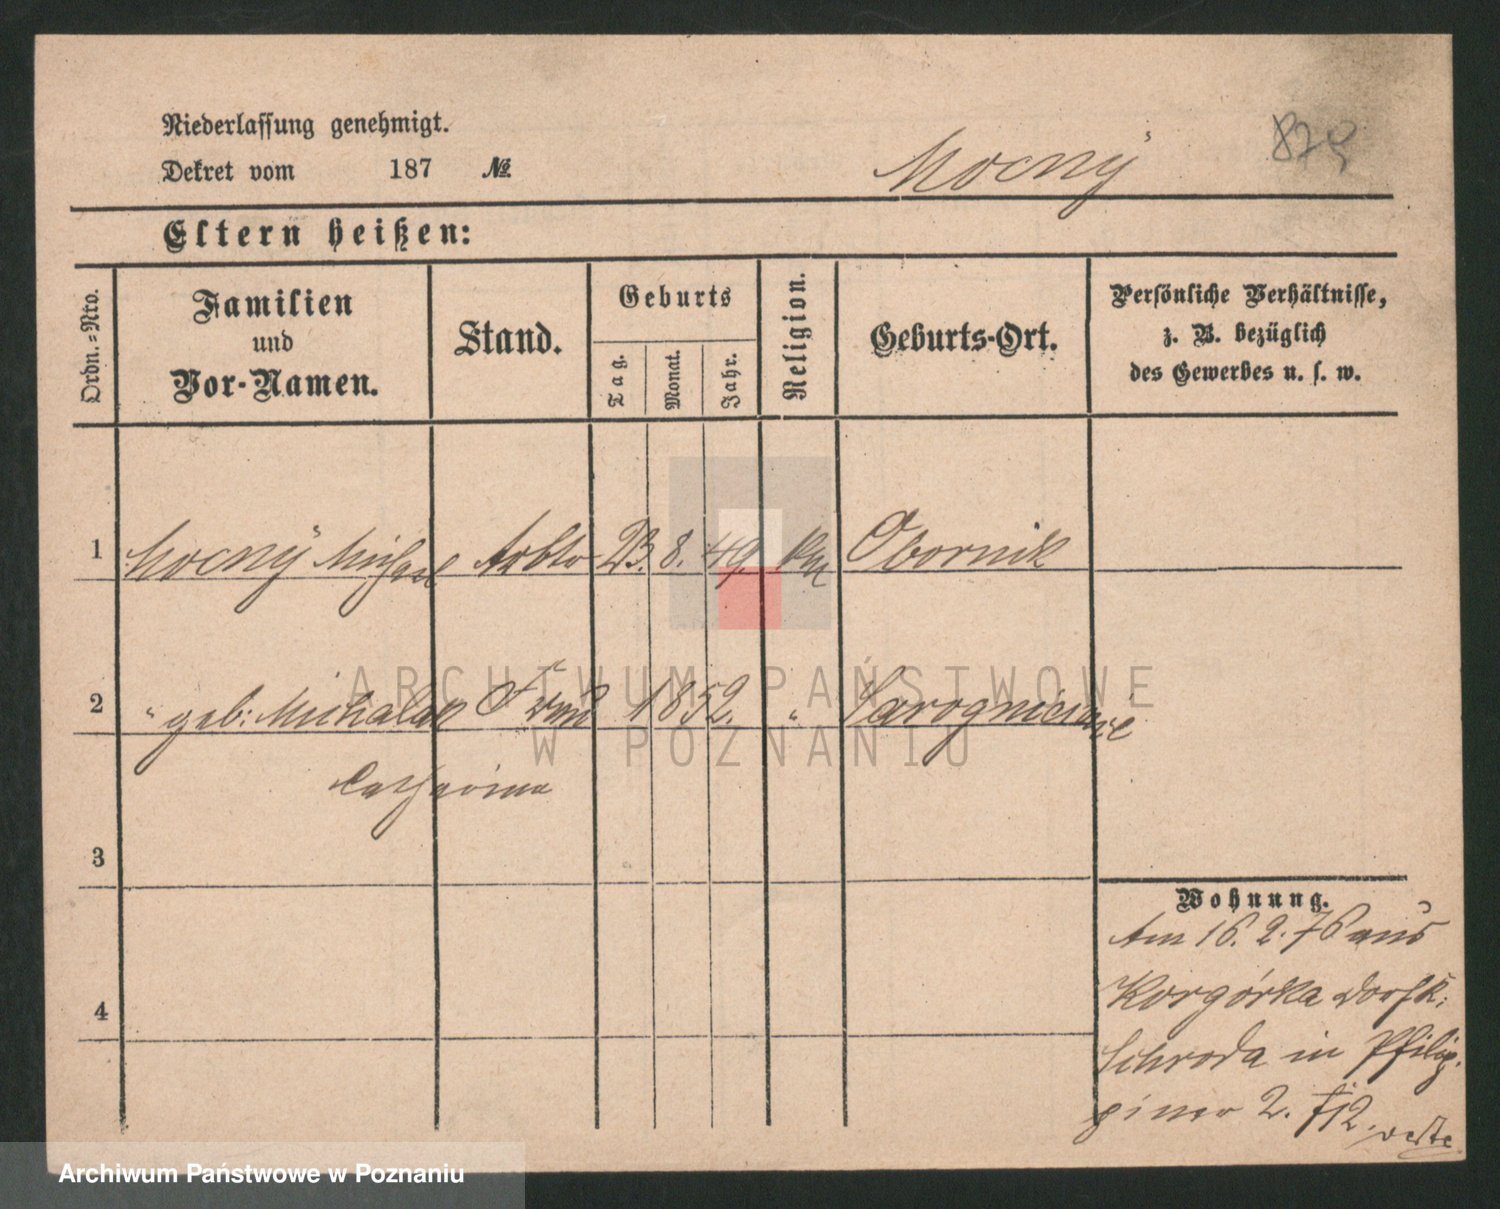 Niederlassung genehmigt.
Dekret vom 187 №
Mocny
879
Eltern heißen:
Ordn.-Nro.
Familien
und
Vor-Namen.
Stand.
Geburts
Tag.
Monat.
Jahr.
Religion.
Geburts-Ort.
Persönliche Verhältnisse,
z. B. bezüglich
des Gewerbes u. s. w.
1 Mocny Michael Arbtr 23. 8. 49. Kth Obornik
2 " geb: Michalak Frau 1852. "
Catharina
3
4
Wohnung.
Am 16. 2. 76 aus
Schroda in Philip.
2.
ARCHIWUM PAŃSTWOWE
W POZNANIU
Archiwum Państwowe w Poznaniu